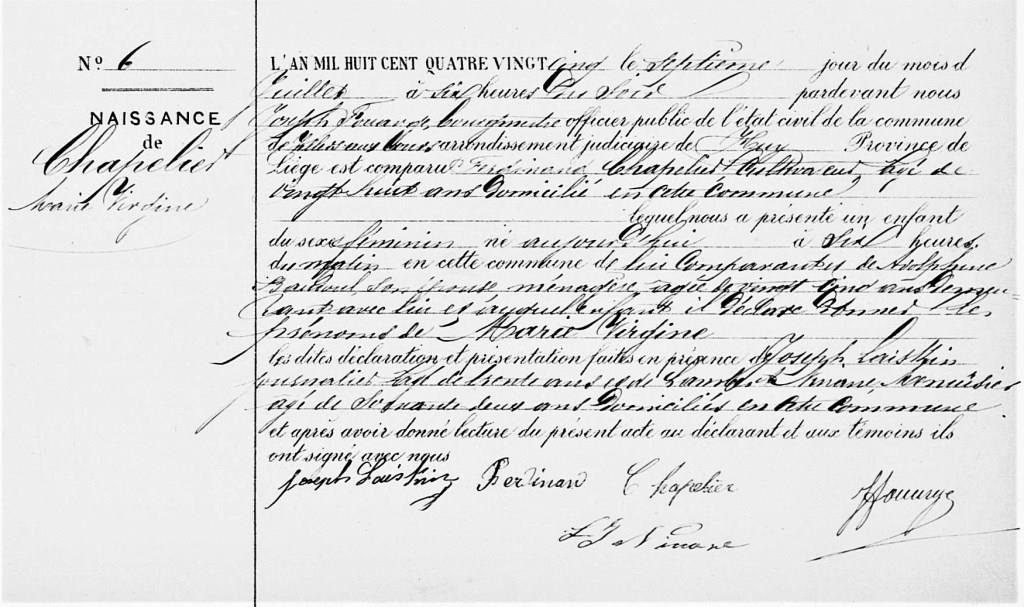 Nº 6
NAISSANCE
de
Chapelier
Marie Virginie
L'AN MIL HUIT CENT QUATRE VINGT cinq le septième jour du mois d
Juillet à six heures du soir pardevant nous
Joseph bourgmestre officier public de l'état civil de la commune
de arrondissement judiciaire de Huy Province de
Liège est comparu Ferdinand Chapelier Cultivateur agé de
vingt huit ans domicilié en cette commune
lequel nous a présenté un enfant
du sexe féminin né aujourd'hui à six heures
du matin en cette commune de lui comparant et de Adolphine
son épouse ménagère agée de vingt cinq ans demeu
rant avec lui et auquel enfant il déclare donner les
prénoms de Marie Virginie
les dites déclaration et présentation faites en présence de Joseph
journalier agé de trente ans et de Lambert Ninane Menuisier
agé de soixante deux ans domiciliés en cette commune
et après avoir donné lecture du présent acte au déclarant et aux témoins ils
ont signé avec nous
Joseph Ferdinand Chapelier
L J Ninane